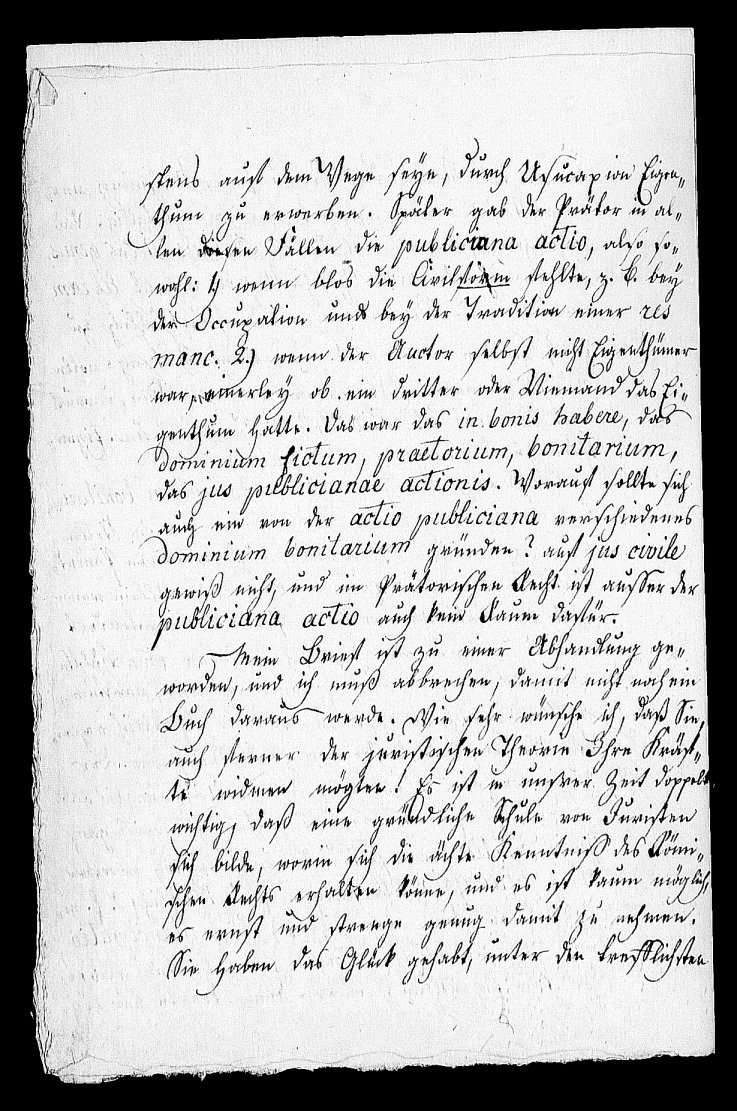 stens auf dem Wege seyn, durch Usucapion Eigen-
thum zu erwerben. Später gab der Prätor in al-
len diesen Fällen die publiciana actio, also so-
wohl: 1) wenn blos die Civilform fehlte, z. B. bey
der Occupation und bey der Tradition einer res
manc. 2.) wenn der Auctor selbst nicht Eigenthümer
war, einerley ob ein dritter oder Niemand das Ei-
genthum hatte. Das war das in bonis habere, das
dominium fictum, praetorium, bonitarium,
das jus publicianae actionis. Worauf sollte sich
auch ein von der actio publiciana verschiedenes
dominium bonitarium gründen? auf jus civile
gewiß nicht, und im Prätorischen Recht ist ausser der
publiciana actio auch kein Raum dafür.
Mein Brief ist zu einer Abhandlung ge-
worden, und ich muß abbrechen, damit nicht noch ein
Buch daraus werde. Wie sehr wünsche ich, daß Sie
auch ferner der juristischen Theorie Ihre Kräf-
te widmen mögten! Es ist in unsrer Zeit doppelt
wichtig, daß eine gründliche Schule von Juristen
sich bilde, worin sich die ächte Kenntniß des Römi-
schen Rechts erhalten könne, und es ist kaum möglich,
es ernst und strenge genug damit zu nehmen.
Sie haben das Glück gehabt, unter den trefflichsten